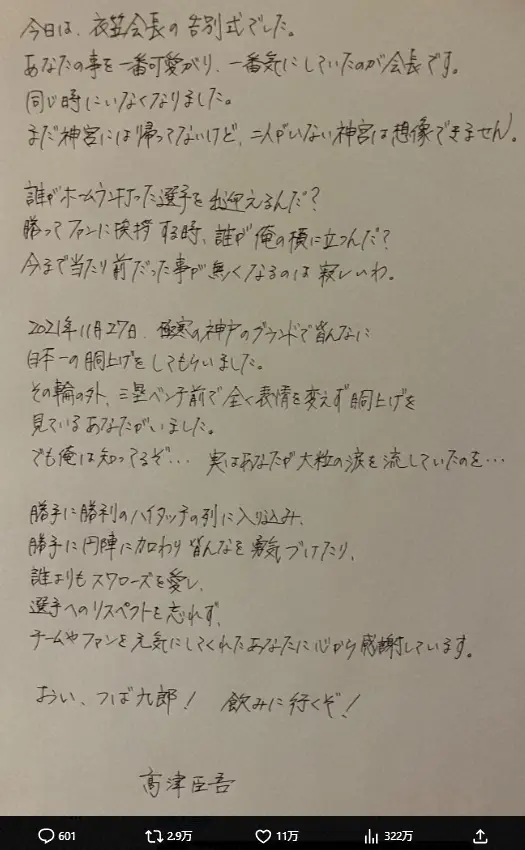 今日は、衣笠会長の告別式でした。
あなたの事を一番可愛がり、一番気にしていたのが会長です。
同じ時にいなくなりました。
まだ神宮には帰ってないけど、二人がいない神宮は想像できません。
誰がホームラン打った選手を出迎えるんだ？
勝ってファンに挨拶する時、誰が俺の横に立つんだ？
今まで当たり前だった事が無くなるのは寂しいわ。
2021年11月27日、極寒の神戸のグランドで皆んなに
日本一の胴上げをしてもらいました。
その輪の外、三塁ベンチ前で全く表情を変えず胴上げを
見ているあなたがいました。
でも俺は知ってるぞ… 実はあなたが大粒の涙を流していたのを…
勝手に勝利のハイタッチの列に入り込み、
勝手に円陣に加わり皆んなを勇気づけたり、
誰よりもスワローズを愛し、
選手へのリスペクトを忘れず、
チームやファンを元気にしてくれたあなたに心から感謝しています。
おうい、つば九郎！ 飲みに行くぞ！
高津臣吾
601 2.9万 11万 322万